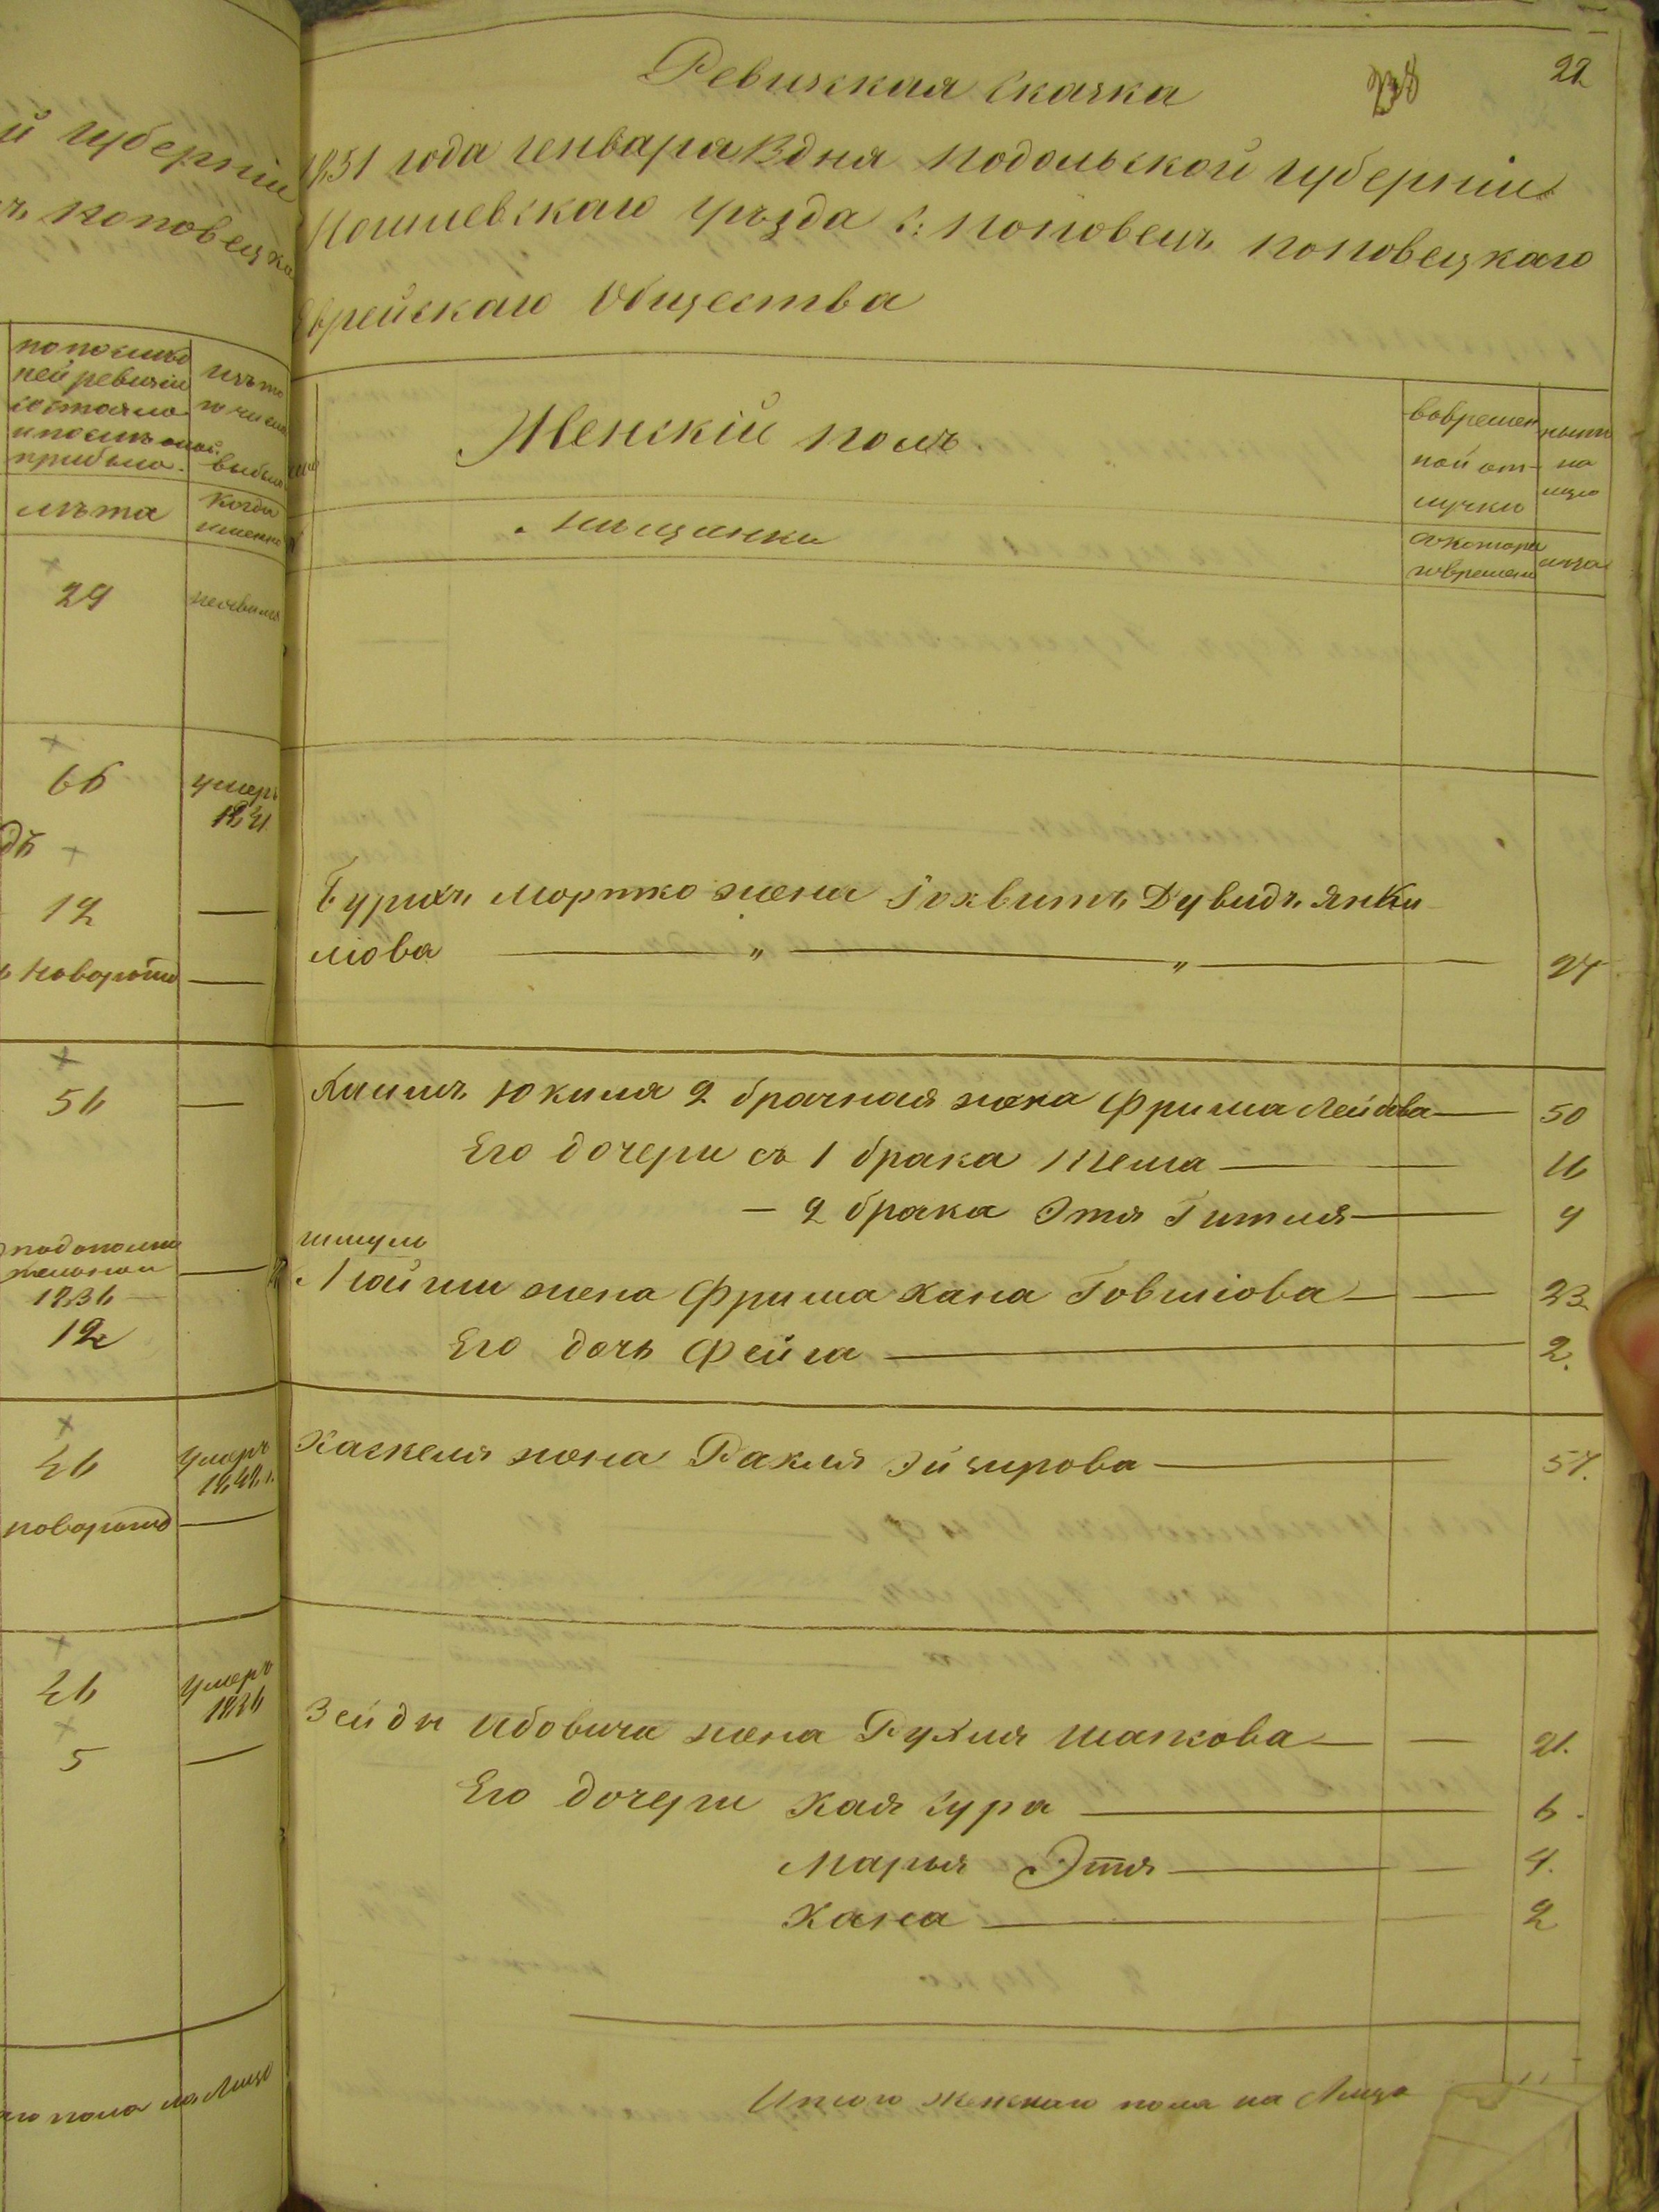 й губерніи
Поповецка
по послед
ней ревизіи
состояло
и после оной
прибыло.
изъ то
го числа
выбыло
лѣта
когда
именно
29
неявился
66
умеръ
1841
дъ
12
—
новорожд
—
56
—
подополни
тельной
1836
12
—
46
умеръ
1842 г.
новорожд
—
46
умеръ
1836
5
—
пола на Лицо
Ревизская сказка
22
1851 года генваря 3 дня Подольской губерніи
Могилевскаго уѣзда с: Поповецъ Поповецкаго
Еврейскаго Общества
Женскій полъ.
вовремен
ной от-
лучки
ныне
на
лицо
Мѣщанки
съ котора
го времени
лета
Бурихъ Мортко жена Рохвитъ Дувидъ Янки
ліова — " — " — 27
Хаимъ Юкиля 2 брачная жена Фрима Лейбова — 50
Его дочери съ 1 брака Шема — 16
— 2 брака Этя Гитля — 4
Шмуль
Мойши жена Фрима Хана Говшіова — 23.
Его дочь Фейга — 2.
Хаскеля жена Рахля Эйзирова — 57.
Зейды Ибовича жена Рухля Шапкова — 21.
Его дочери Хая Сура — 6.
Марья Этя — 4.
Хана — 2
Итого женскаго пола на Лицо